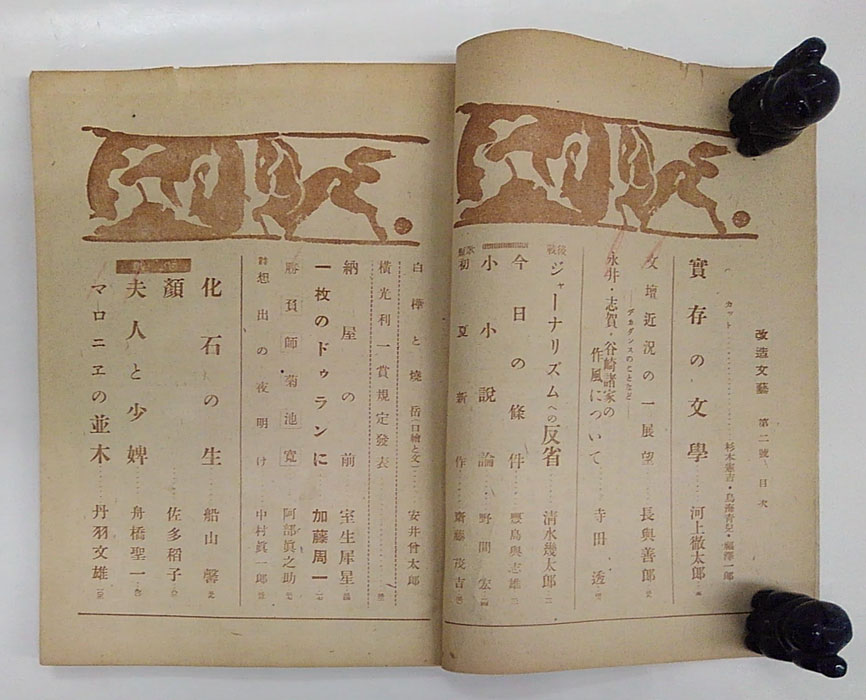 改造文藝 第二號 目次
カット 杉本憲吉・鳥海青兒・福澤一郎
實存の文學 河上徹太郎
文壇近況の一展望 長與善郎
―デカダンスのことなど―
永井・志賀・谷崎諸家の作風について 寺田透
戰後ジャーナリズムへの反省 清水幾太郎
今日の條件 豐島與志雄
小小說論 野間宏
初夏新作 齋藤茂吉
白樺と燒岳(口繪と文) 安井曾太郎
橫光利一賞規定發表
納屋の前 室生犀星
一枚のドゥランに 加藤周一
勝負師菊池寬 阿部眞之助
詩 想出の夜明け 中村眞一郎
化石の生 船山馨
顏 佐多稻子
夫人と少婢 舟橋聖一
マロニヱの並木 丹羽文雄